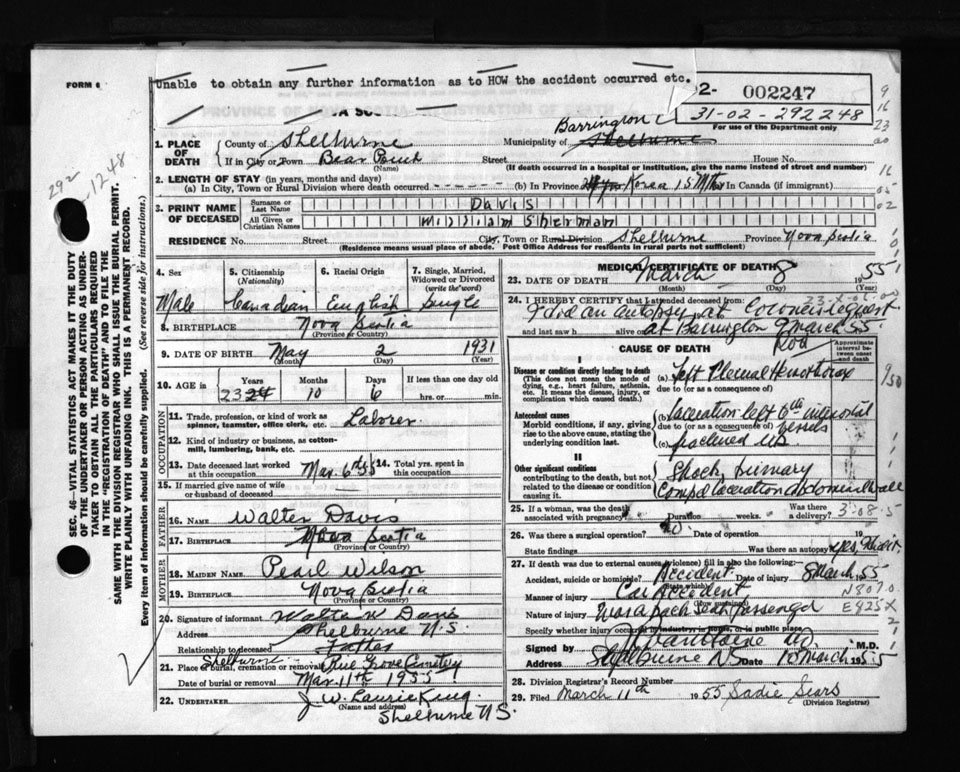 Unable to obtain any further information as to HOW the accident occurred etc.
FORM 6
PROVINCE OF NOVA SCOTIA—REGISTRATION OF DEATH
002247
31-02-292248
For use of the Department only
292
1248
1. PLACE OF DEATH
County of Shelburne Municipality of Shelburne Barrington
If in City or Town Bear Point Street House No.
(Name) (If death occurred in a hospital or institution, give the name instead of street and number)
2. LENGTH OF STAY (in years, months and days)
(a) In City, Town or Rural Division where death occurred (b) In Province Korea 15 Mths In Canada (if immigrant)
3. PRINT NAME OF DECEASED
Surname or Last Name Davis
All Given or Christian Names William Sherman
RESIDENCE No. Street City, Town or Rural Division Shelburne Province Nova Scotia
(Residence means usual place of abode. Post Office Address for residents in rural parts not sufficient)
4. Sex Male
5. Citizenship (Nationality) Canadian
6. Racial Origin English
7. Single, Married, Widowed or Divorced (write the word) Single
8. BIRTHPLACE Nova Scotia
(Province or Country)
9. DATE OF BIRTH May 2 1931
(Month) (Day) (Year)
10. AGE in Years 23 24 Months 10 Days 6 If less than one day old
hrs. or min.
OCCUPATION
11. Trade, profession, or kind of work as spinner, teamster, office clerk, etc. Laborer
12. Kind of industry or business, as cotton-mill, lumbering, bank, etc.
13. Date deceased last worked at this occupation Mar. 6th 55
14. Total yrs. spent in this occupation
15. If married give name of wife or husband of deceased
FATHER
16. NAME Walter Davis
17. BIRTHPLACE Nova Scotia
(Province or Country)
MOTHER
18. MAIDEN NAME Pearl Wilson
19. BIRTHPLACE Nova Scotia
(Province or Country)
20. Signature of informant Walter Davis
Address Shelburne N.S.
Relationship to deceased Father
21. Place of burial, cremation or removal Shelburne Pine Grove Cemetery
Date of burial or removal Mar. 11th 1955
22. UNDERTAKER J. W. Laurie King
(Name and address)
Shelburne N.S.
MEDICAL CERTIFICATE OF DEATH
23. DATE OF DEATH March 8 1955
(Month) (Day) (Year)
24. I HEREBY CERTIFY that I attended deceased from:
I did an autopsy at Coroner's request
and last saw h alive on at Barrington 9 March 55
CAUSE OF DEATH
Approximate interval between onset and death
I
Disease or condition directly leading to death
(This does not mean the mode of dying, e.g., heart failure, asthenia, etc. It means the disease, injury, or complication which caused death.)
(a) Left Pleural Hemothorax
due to (or as a consequence of)
Antecedent causes
Morbid conditions, if any, giving rise to the above cause, stating the underlying condition last.
(b) laceration left 6th intercostal vessels
due to (or as a consequence of)
(c) fractured ribs
II
Other significant conditions contributing to the death, but not related to the disease or condition causing it.
Shock primary
Compd laceration abdominal wall
25. If a woman, was the death associated with pregnancy? Duration weeks. Was there a delivery?
3.08.5
26. Was there a surgical operation? no Date of operation 19
State findings Was there an autopsy? yes
27. If death was due to external causes (violence) fill in also the following:—
Accident, suicide or homicide? Accident Date of injury 8 March 1955
(State which)
Manner of injury Car Accident
(How sustained)
Nature of injury Was a back seat passenger
N807.0
E825X
Specify whether injury occurred in industry, in home, or in public place.
Signed by M.D.
Address Shelburne NS Date 10 March 1955
28. Division Registrar's Record Number
29. Filed March 11th 1955 Sadie Sears
(Division Registrar)
SEC. 46—VITAL STATISTICS ACT MAKES IT THE DUTY OF THE UNDERTAKER OR PERSON ACTING AS UNDERTAKER TO OBTAIN ALL THE PARTICULARS REQUIRED IN THE "REGISTRATION OF DEATH" AND TO FILE THE SAME WITH THE DIVISION REGISTRAR WHO SHALL ISSUE THE BURIAL PERMIT.
WRITE PLAINLY WITH UNFADING INK. THIS IS A PERMANENT RECORD.
Every item of information should be carefully supplied. (See reverse side for instructions.)